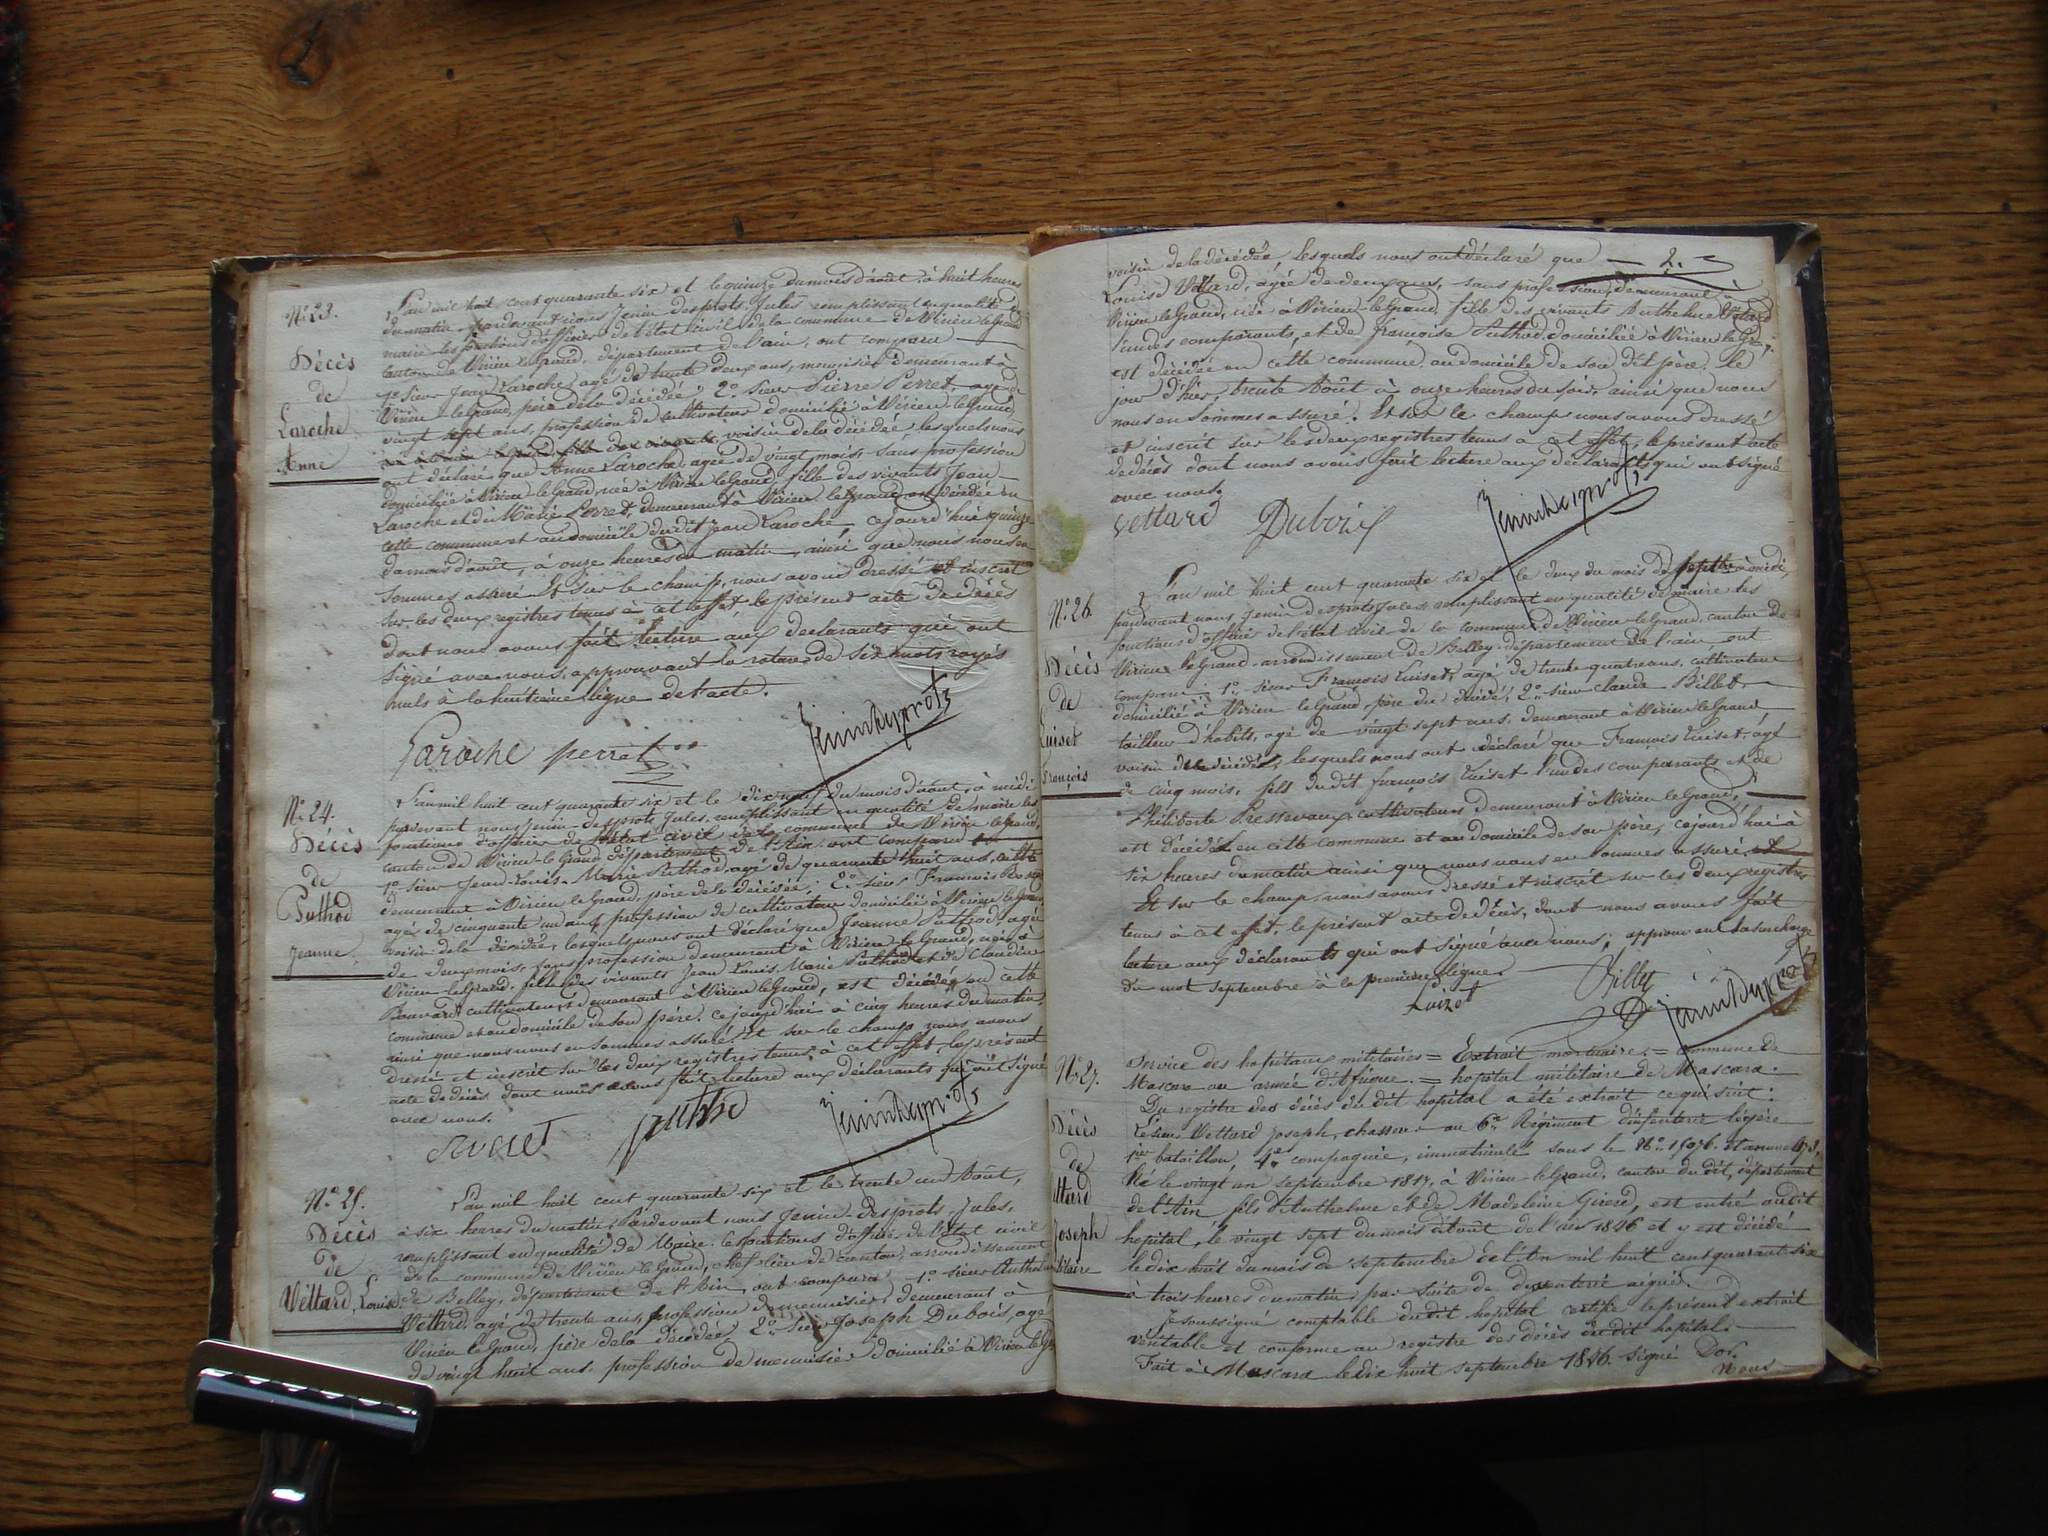 N.° 23.
Décès
de
Laroche
Anne
L'an mil huit cent quarante six et le quinze du mois d'août, à huit heures
du matin pardevant nous Jenin desprots, Jules remplissant en qualité de
maire les fonctions d'officier de l'état civil de la commune de Virieu le Grand
canton de Virieu le Grand, département de l'ain, ont comparu
1.° sieur Jean Laroche, agé de trente deux ans, menuisier demeurant à
Virieu-le-Grand, père de la décédée 2.° sieur Pierre Perret, agé de
vingt sept ans, profession de cultivateur domicilié à Virieu-le-Grand,
voisin de la décédée lesquels nous
ont déclaré que Anne Laroche, agée de vingt mois, sans profession
domiciliée à Virieu-le-Grand, née à Virieu le Grand, fille des vivants Jean
Laroche et de Marie Perret, demeurant à Virieu le Grand est décédée en
cette commune et au domicile du dit jean Laroche, cejourd'hui quinze
du mois d'août, à onze heures du matin, ainsi que nous nous en
sommes assuré Et sur le champ, nous avons dressé et inscrit
sur les deux registres tenus à cet effet le présent acte de décès
dont nous avons fait lecture aux déclarants qui ont
signé avec nous, approuvant la rature de six mots rayés
nuls à la huitième ligne de l'acte.
Laroche perret Jenindesprots
N.° 24.
Décès
de
Puthod
Jeanne
L'an mil huit cent quarante six et le dix neuf du mois d'août, à midi
pardevant nous jenin-desprots Jules remplissant en qualité de maire les
fonctions d'officier de l'état civil de la commune de Virieu le Grand,
canton de Virieu-le-Grand département de l'Ain ont comparu
1.° sieur Jean-Louis-Marie Puthod, agé de quarante huit ans, cultiv.
demeurant à Virieu le Grand, père de la décédée; 2.° sieur François
agé de cinquante un ans, profession de cultivateur domicilié à Virieu le Grand
voisin de la décédée, lesquels nous ont déclaré que Jeanne Puthod, agée
de deux mois, sans profession demeurant à Virieu-le-Grand, née à
Virieu-le-Grand, fille des vivants Jean Louis Marie Puthod et de Claudine
cultivateurs demeurant à Virieu le Grand, est décédée en cette
commune et au domicile de son père, cejourd'hui à cinq heures du matin,
ainsi que nous nous en sommes assuré. Et sur le champ nous avons
dressé et inscrit sur les deux registres tenus à cet effet, le présent
acte de décès dont nous avons fait lecture aux déclarants qui ont signé
avec nous.
Jenindesprots
N.° 25.
Décès
de
Vettard, Louise
L'an mil huit cent quarante six et le trente un Août,
à six heures du matin, Pardevant nous Jenin-desprots, Jules,
remplissant en qualité de Maire les fonctions d'officier de l'état civil
de la commune de Virieu le Grand, chef lieu de canton, arrondissement
de Belley, département de l'Ain, ont comparu 1.° sieur Anthelme
Vettard, agé de trente ans, profession de menuisier, demeurant à
Virieu le Grand, père de la décédée 2.° sieur Joseph Dubois, agé
de vingt huit ans, profession de menuisier domicilié à Virieu le Gd
voisin de la décédée, lesquels nous ont déclaré que — 2.
Louise Vettard, agée de deux ans, sans profession, demeurant à
Virieu le Grand, née à Virieu-le-Grand, fille des vivants Anthelme Vettard
l'un des comparants, et de françoise Puthod, domiciliée à Virieu le Grand,
est décédée en cette commune au domicile de son dit père, le
jour d'hier, trente Août à onze heures du soir, ainsi que nous
nous en sommes assuré. Et sur le champ nous avons dressé
et inscrit sur les deux registres tenus à cet effet, le présent acte
de décès dont nous avons fait lecture aux déclarants qui ont signé
avec nous.
Vettard Dubois Jenindesprots
N.° 26
Décès
de
Luiset
françois
L'an mil huit cent quarante six et le deux du mois de septbre à midi,
pardevant nous, Jenin desprots Jules remplissant en qualité de maire les
fonctions d'officier de l'état civil de la commune de Virieu-le-Grand, canton de
Virieu le Grand arrondissement de Belley, département de l'ain ont
comparu: 1.° sieur François Luiset, agé de trente quatre ans, cultivateur
domicilié à Virieu le Grand, père du décédé, 2.° sieur claude Billet
tailleur d'habits, agé de vingt sept ans, demeurant à Virieu le Grand
voisin du décédé, lesquels nous ont déclaré que François Luiset, agé
de cinq mois, fils du dit françois Luiset l'un des comparants et de
Philiberte Pressevaux cultivateurs demeurant à Virieu le Grand,
est décédé en cette commune et au domicile de son père, cejourd'hui à
six heures du matin ainsi que nous nous en sommes assuré et
Et sur le champ, nous avons dressé et inscrit sur les deux registres
tenus à cet effet, le présent acte de décès, dont nous avons fait
lecture aux déclarants qui ont signé avec nous; approuvant la surcharge
du mot septembre à la première ligne.
Luizet Billet Jenindesprots
N.° 27.
Décès
de
ttard
Joseph
litaire
Service des hopitaux militaires = Extrait mortuaire. = commune de
Mascara ou armée d'Afrique. = hopital militaire de Mascara.
Du registre des décès du dit hopital a été extrait ce qui suit:
Le sieur Vettard Joseph, chasseur au 6e Régiment d'infanterie légère
1er bataillon, 4e compagnie, immatriculé sous le N.°
Né le vingt un septembre 1817, à Virieu-le-Grand, canton du dit, département
de l'Ain fils d'Anthelme et de Madeleine Girerd, est entré au dit
hopital, le vingt sept du mois d'août de l'an 1846 et y est décédé
le dix huit du mois de septembre de l'An mil huit cent quarante six
à trois heures du matin, par suite de dyssenterie aiguë.
Je soussigné comptable du dit hopital certifie le présent extrait
véritable et conforme au registre des décès du dit hopital.
Fait à Mascara le dix huit septembre 1846. signé
Nous